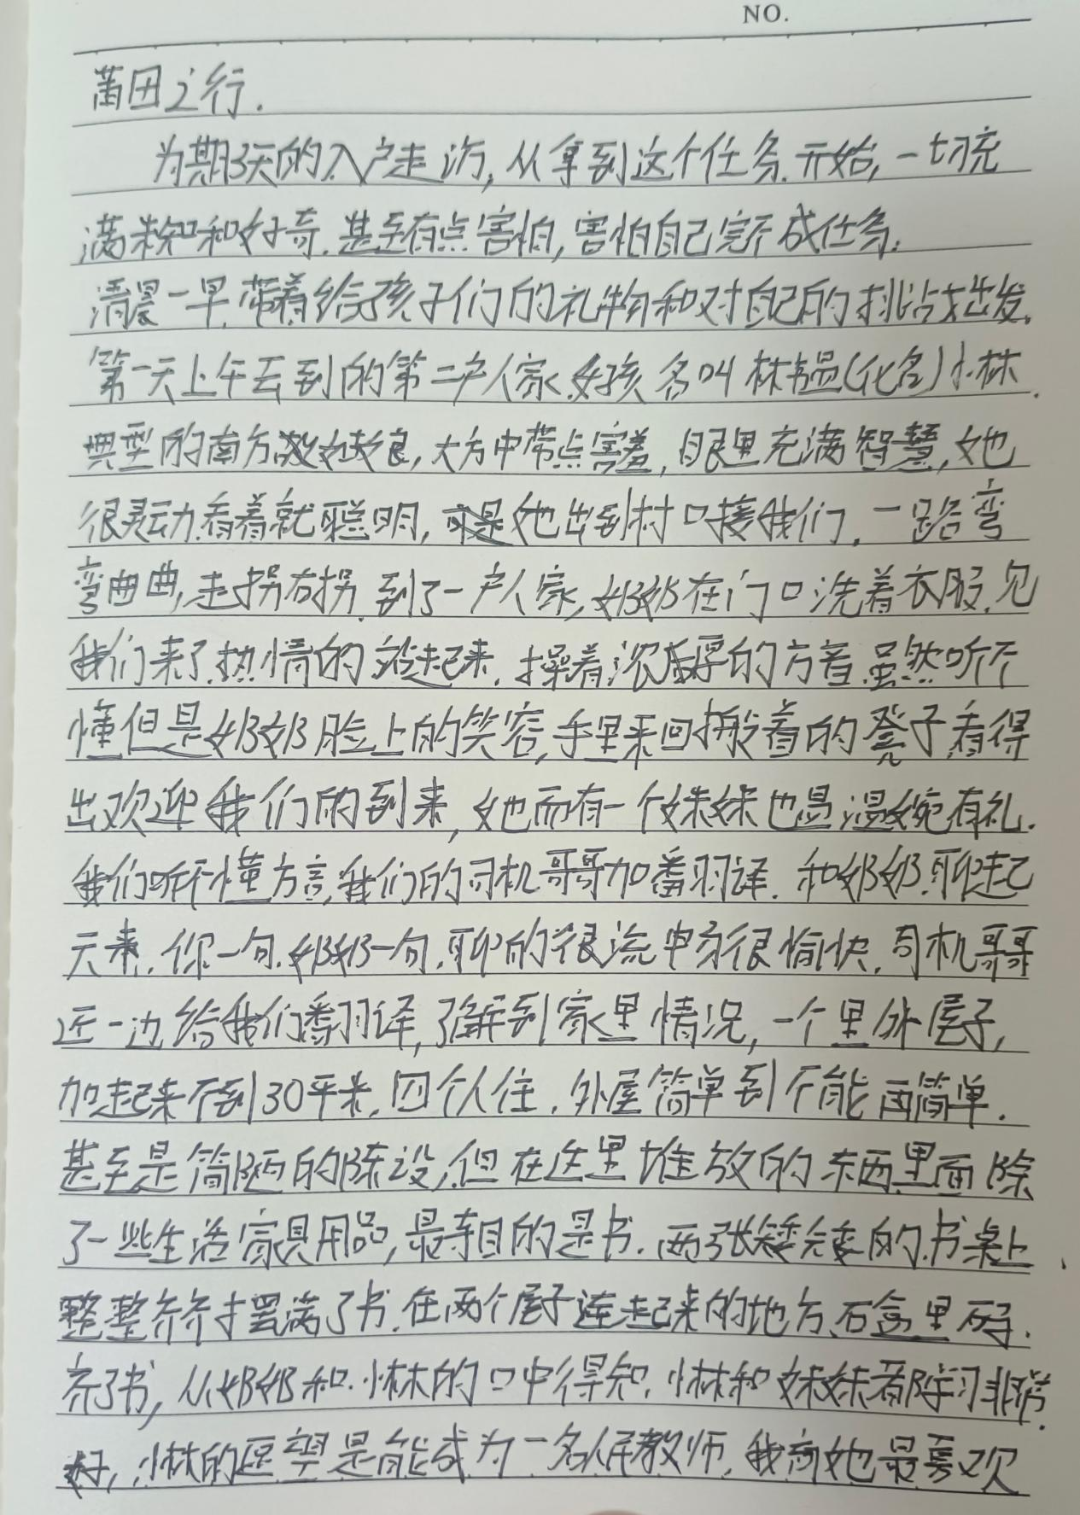 NO.
莆田之行.
为期3天的入户走访,从拿到这个任务.开始,一切充
满未知和好奇.甚至有点害怕,害怕自己完不成任务.
清晨一早.带着给孩子们的礼物和对自己的挑战出发.
第一天上午去到的第二户人家.女孩名叫林韫(化名)小林.
典型的南方姑娘,大方中带点害羞,眼里充满智慧,她
很灵动.看着就聪明,她出到村口接我们.一路弯
弯曲曲,走拐右拐.到了一户人家,奶奶在门口洗着衣服.见
我们来了.热情的站起来.操着浓厚的方音.虽然听不
懂但是奶奶脸上的笑容,手里来回搬着的凳子.看得
出欢迎我们的到来,她而有一个妹妹也显温婉有礼.
我们听不懂方言,我们的司机哥哥加番羽译.和奶奶聊起
天来.你一句.奶奶一句.聊的很流申另很愉快.司机哥哥
近一边给我们番羽译,了解到家里情况,一个里外屋子,
加起来不到30平米.四个人住.外屋简单到不能再简单.
甚至是简陋的陈设,但在这里堆放的东西里面除
了一些生活家具用品,最夺目的是书.两张矮矮的书桌上
整整齐齐摆满了书.在两个屋子连起来的地方.石盒里码.
齐了书,从奶奶和.小林的口中得知.小林和妹妹都学习非常
好,小林的愿望是能成为一名人民教师.我问她最喜欢